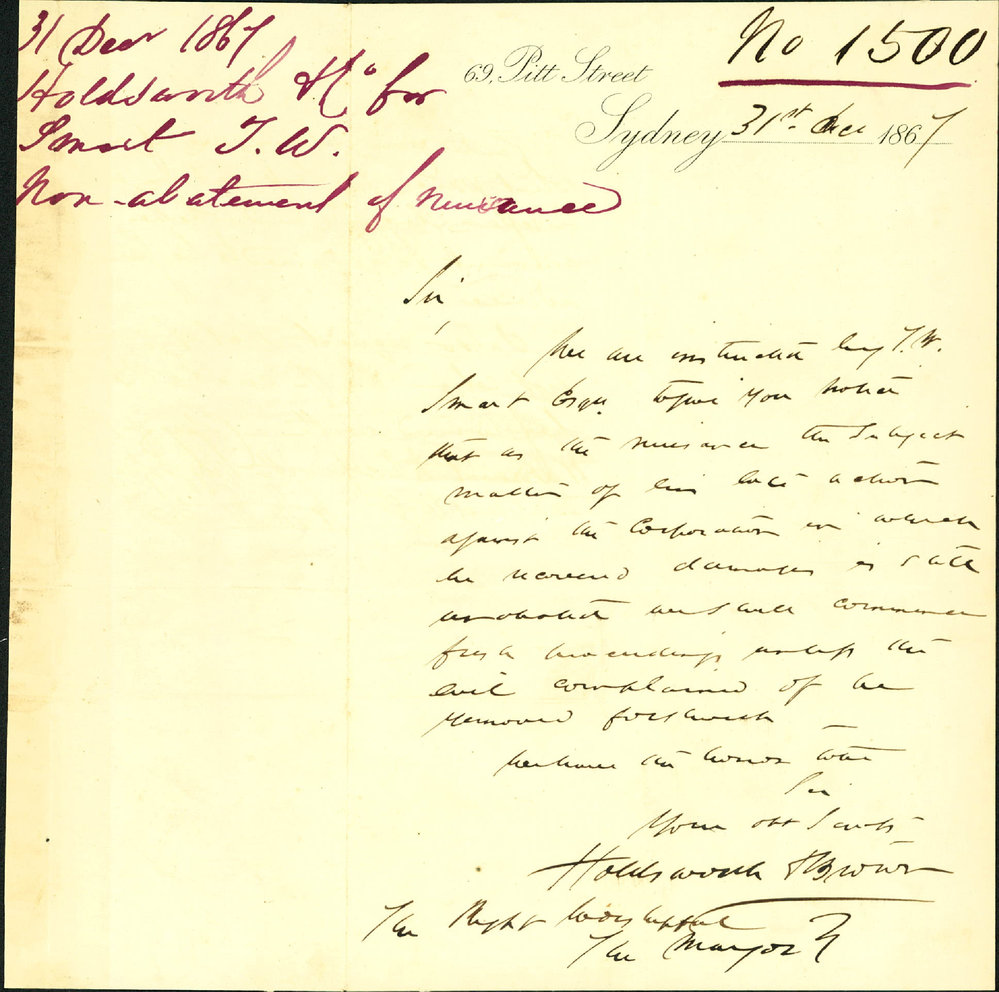 31 Decr 1867
Holdsworth & Co for
Smart T. W.
Non-abatement of nuisance
No 1500
69, Pitt Street
Sydney 31st Dec 1867
Sir,
We are instructed by T. W.
Smart Esqre. to give you notice
that as the nuisance the subject
matter of his late action
against the Corporation in which
he recovered damages is still
unabated we shall commence
fresh proceedings unless the
evil complained of be
removed forthwith
We have the honor to be
Sir
Your obt Servts
Holdsworth & Brown
The Right Worshipful
The Mayor